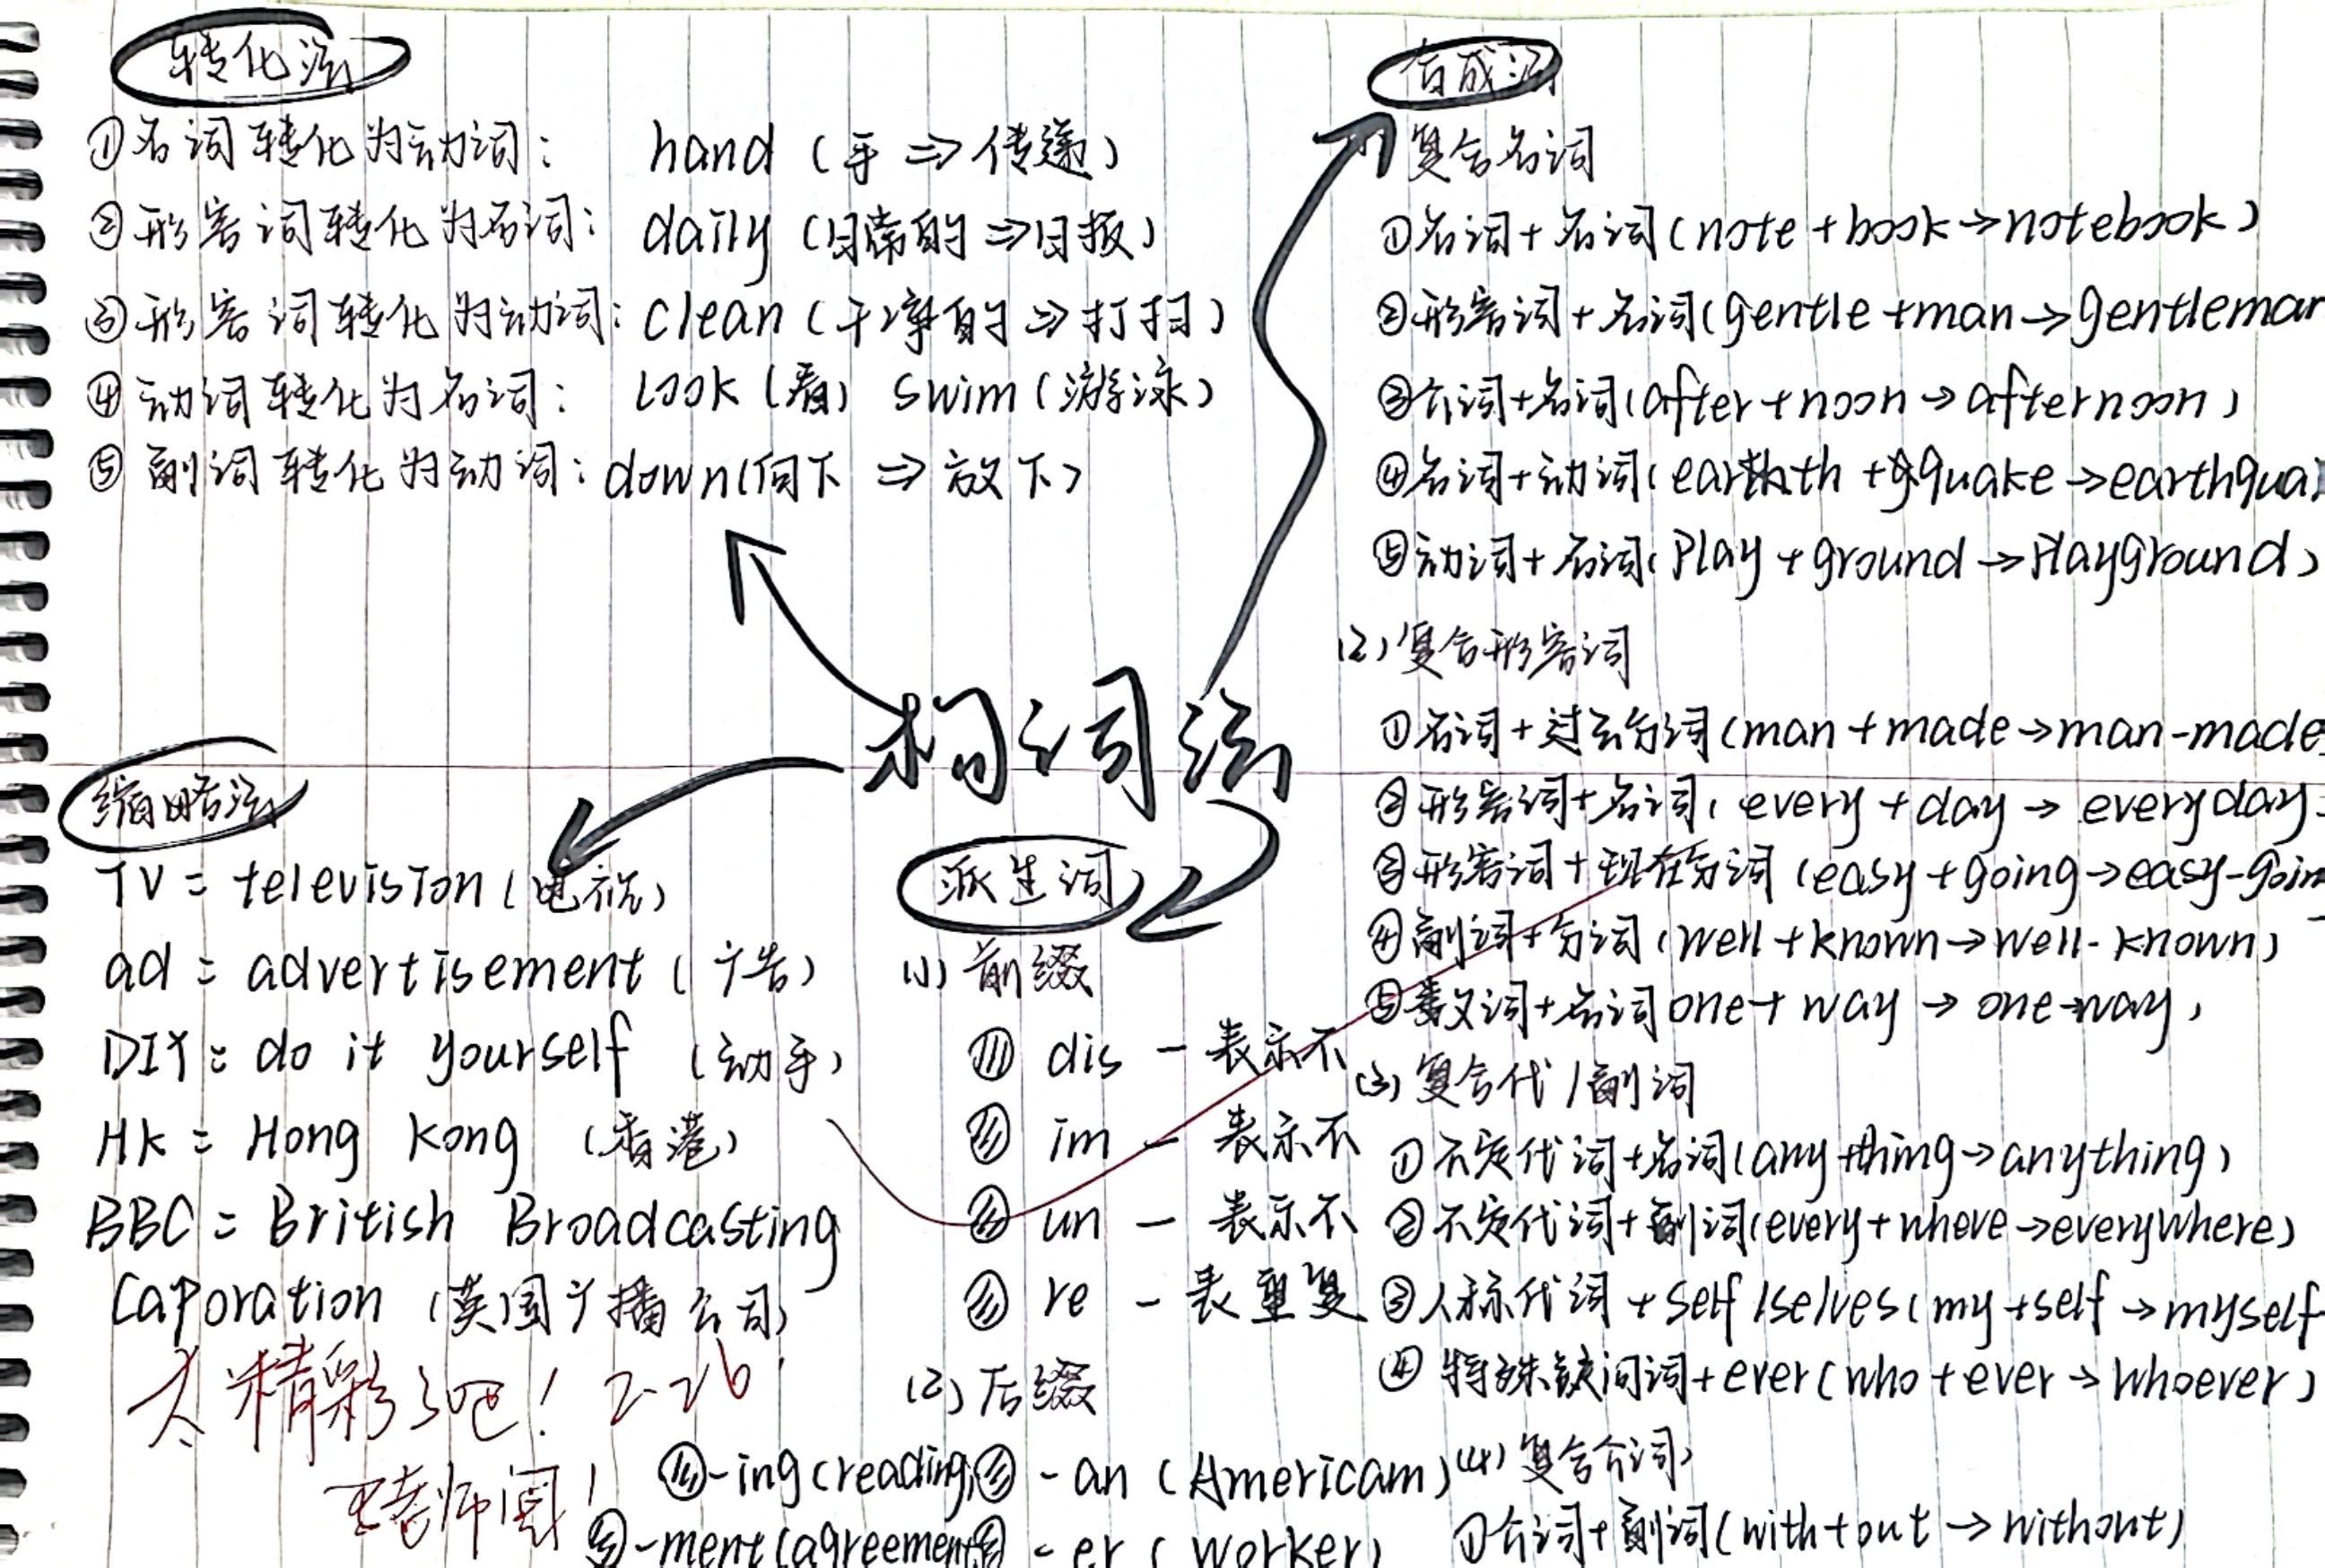 转化法
①名词转化为动词: hand (手⇒传递)
②形容词转化为名词: daily (日常的⇒日报)
③形容词转化为动词: clean (干净的⇒打扫)
④动词转化为名词: look (看) swim (游泳)
⑤副词转化为动词: down (向下⇒放下)
构词法
缩略法
TV = television (电视)
ad = advertisement (广告)
DIY = do it yourself (动手)
HK = Hong Kong (香港)
BBC = British Broadcasting
Caporation (英国广播公司)
太精彩了吧! 2.26
王老师阅!
派生词
(1) 前缀
(1) dis - 表示不
(2) im - 表示不
(3) un - 表示不
(3) re - 表重复
(2) 后缀
-ing (reading) -an (Americam)
-ment (agreement -er (worker)
合成词
(1) 复合名词
①名词+名词(note+book→notebook)
②形容词+名词(gentle+man→gentleman
③介词+名词(after+noon→afternoon)
④名词+动词(earth+quake→earthquak
⑤动词+名词(play+ground→playground)
(2) 复合形容词
①名词+过去分词(man+made→man-made
②形容词+名词(every+day→everyday
③形容词+现在分词(easy+going→easy-goin
④副词+分词(well+known→well-known)
⑤数词+名词 one+way→one-way)
(3) 复合代/副词
①不定代词+名词(any+thing→anything)
②不定代词+副词(every+where→everywhere)
③人称代词+self/selves(my+self→myself
④特殊疑问词+ever(who+ever→whoever)
(4) 复合介词
①介词+副词(with+out→without)